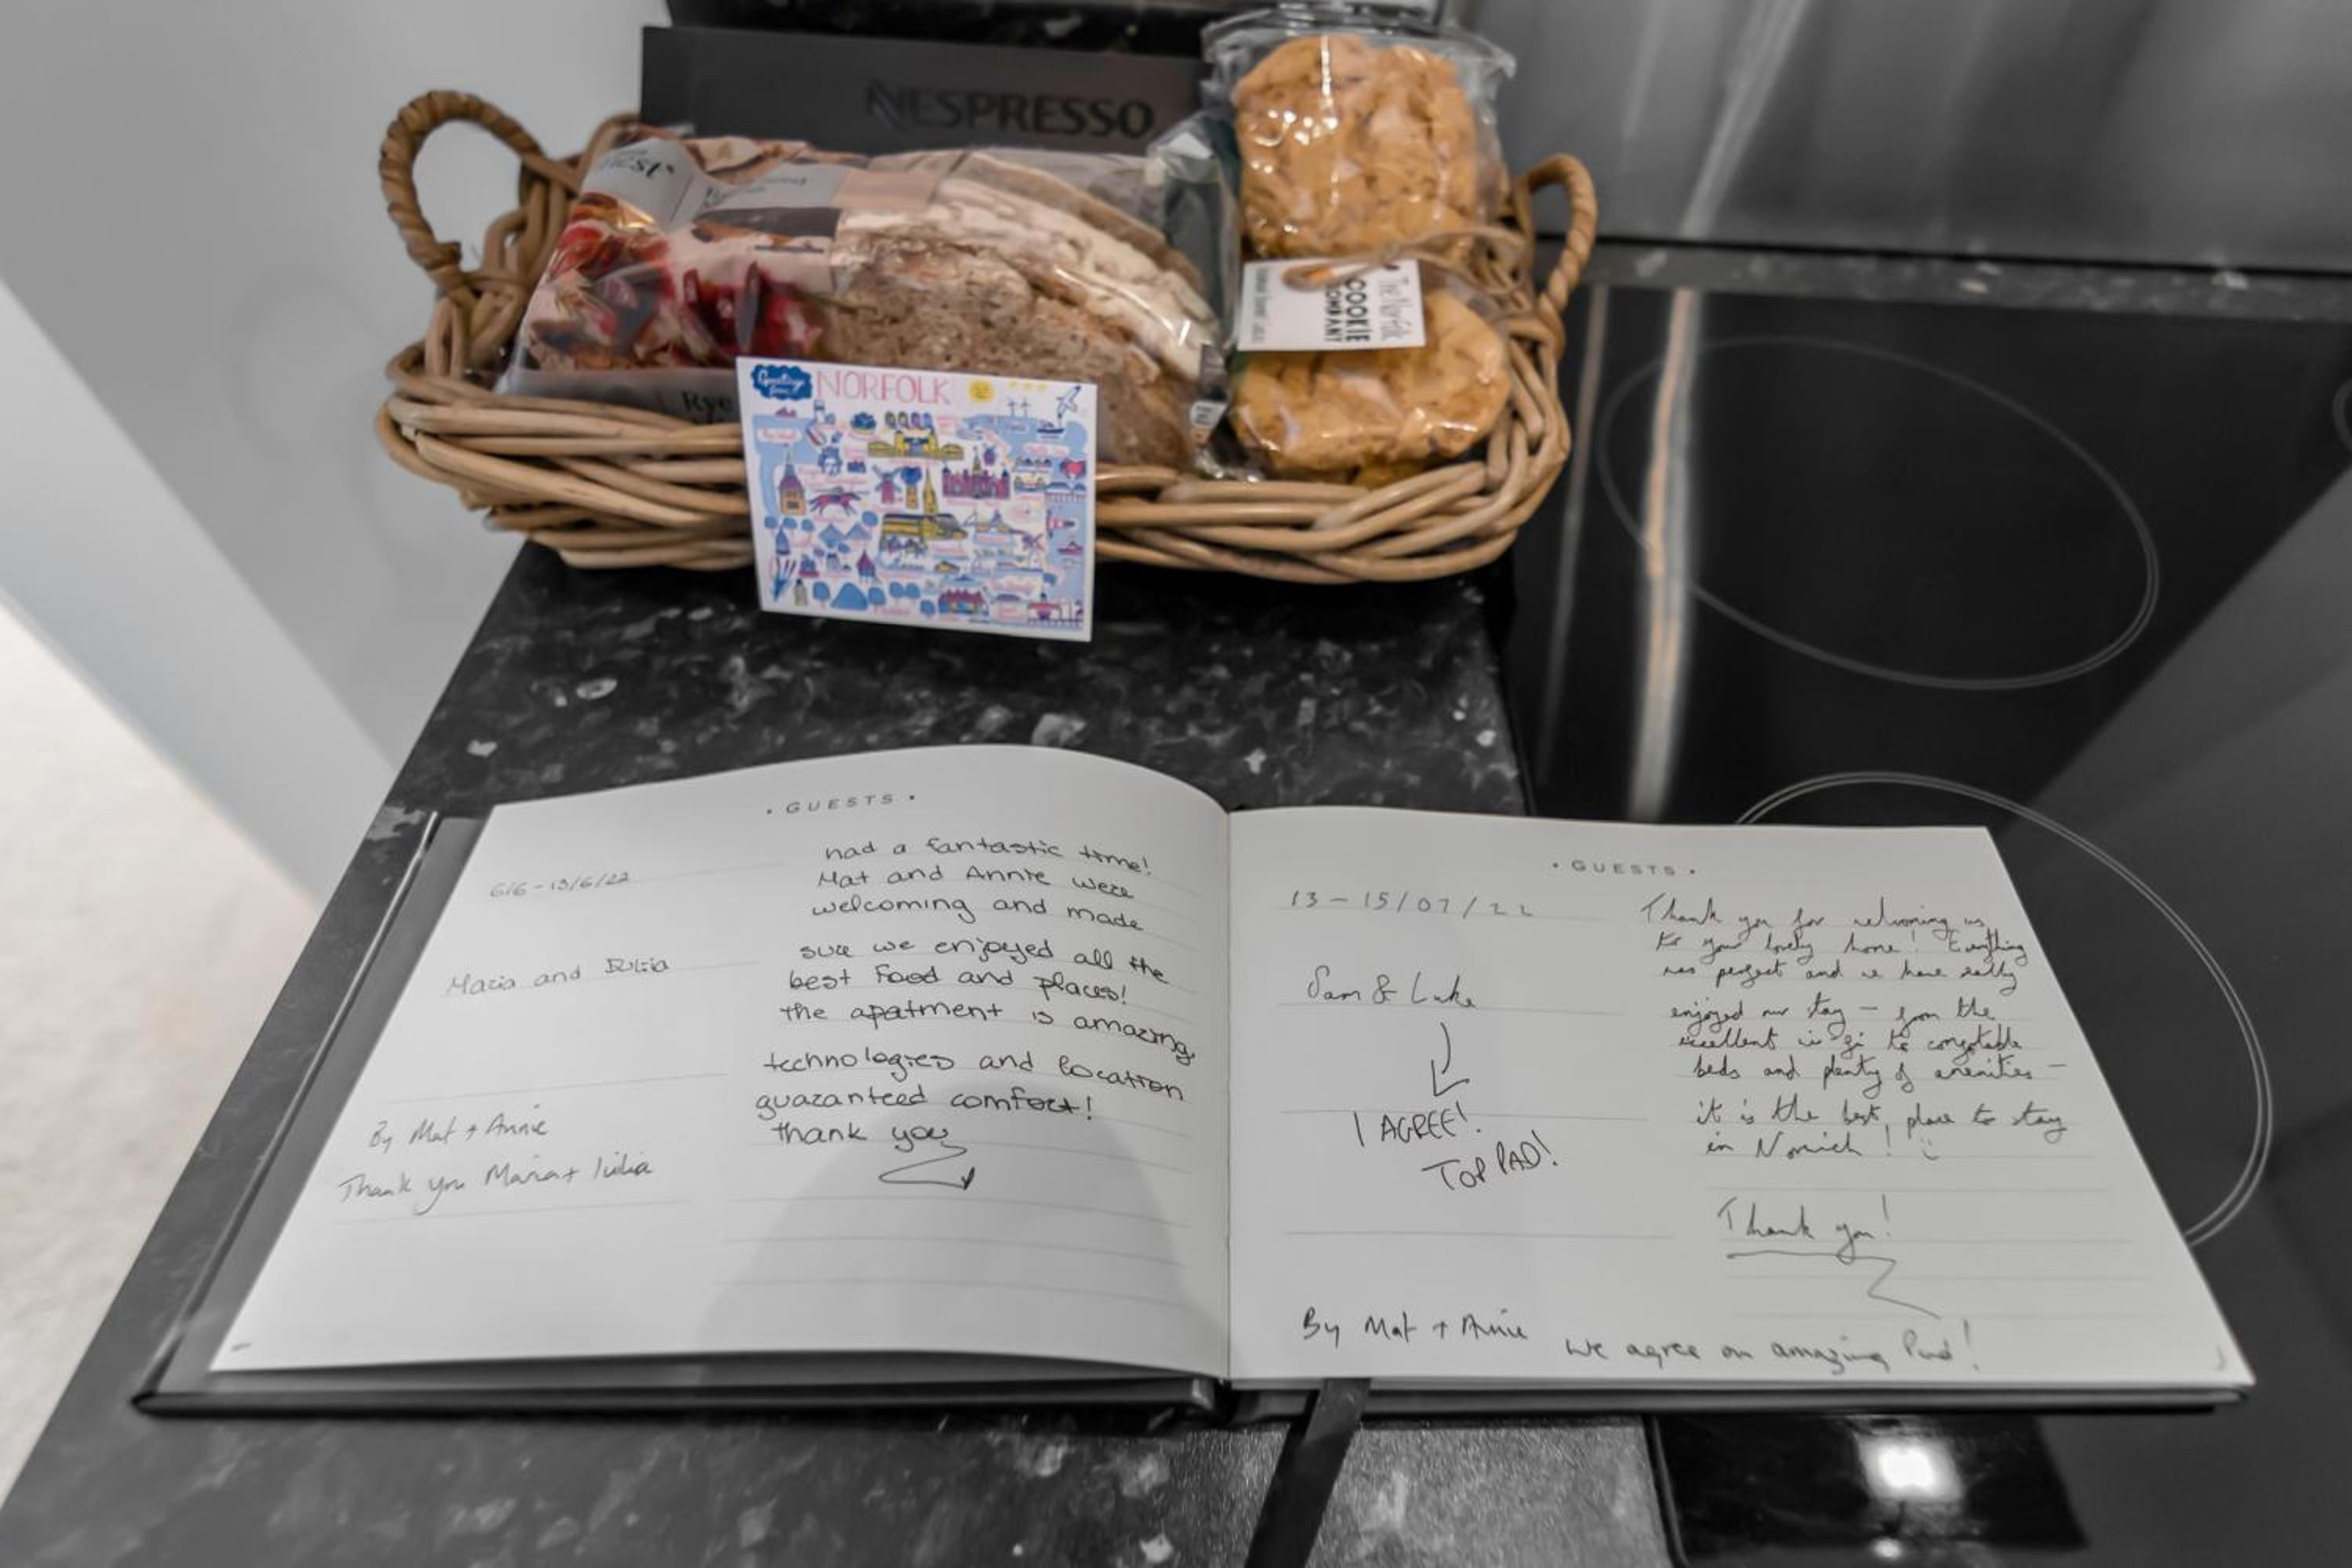 NESPRESSO
Rye
The Norfolk
COOKIE
COMPANY
Greetings
from
NORFOLK
• GUESTS •
6/6-13/6/22
Maria and Iulia
By Mat + Annie
Thank you Maria + Iulia
had a fantastic time!
Mat and Annie were
welcoming and made
sure we enjoyed all the
best food and places!
the apatment is amazing,
technologies and location
guaranteed comfort!
thank you
• GUESTS •
13-15/07/22
Sam & Luke
I AGREE!
TOP PAD!
Thank you for welcoming us
to your lovely home! Everything
was perfect and we have really
enjoyed our stay - from the
excellent wi-fi to comfortable
beds and plenty of amenities -
it is the best place to stay
in Norwich! :)
Thank you!
By Mat + Annie
We agree on amazing Pad!